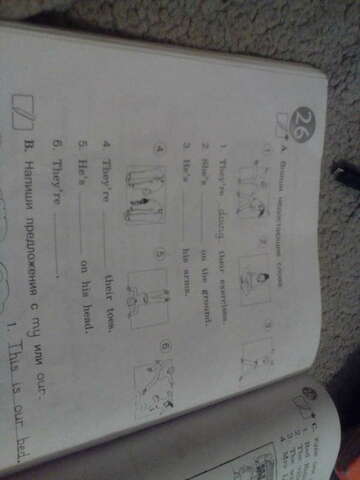 26
A. Впиши недостающие слова.
1 2 3
1. They're doing their exercises.
2. She's ______ on the ground.
3. He's ______ his arms.
4 5 6
4. They're ______ their toes.
5. He's ______ on his head.
6. They're ______.
B. Напиши предложения с my или our.
1. This is our bed.
C.
1. Bed
2. The
3. The
4. My